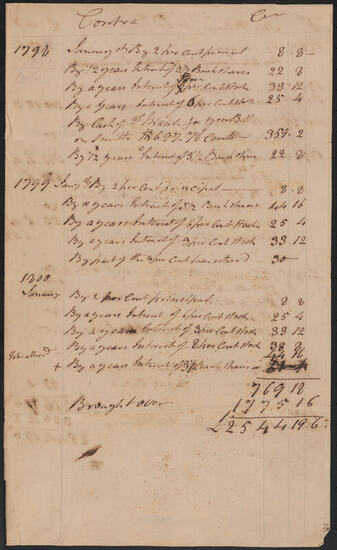 Contra Cr
1798 January th By 2 per Cent principal 8 8
By 1/2 years Interest of 3 1/2 Bank Shares 22 8
By a years Interest of per Cent Stock 33 12
By a years Interest of 6 per Cent Stock 25 4
By Cash of D. for your Bill
on Smith 357 2
By 1/2 years Interest of 3 1/2 Bank Share 22 8
1799 Jany th By 2 per Cent principal 8 8
By a years Interest of 3 1/2 Bank Shares 44 16
By a years Interest of 6 per Cent Stock 25 4
By a years Interest of 3 per Cent Stock 33 12
By part of the per Cent loan returnd 30
1800
January By 2 per Cent principal 8 8
By a years Interest of 6 per Cent Stock 25 4
By a years Interest of 3 per Cent Stock 33 12
By a years Interest of 8 per Cent Stock 38 8
44 16
+ By a years Interest of 3 1/2 Bank Shares
769 18
Brought over 1775 16
£2544 19 6